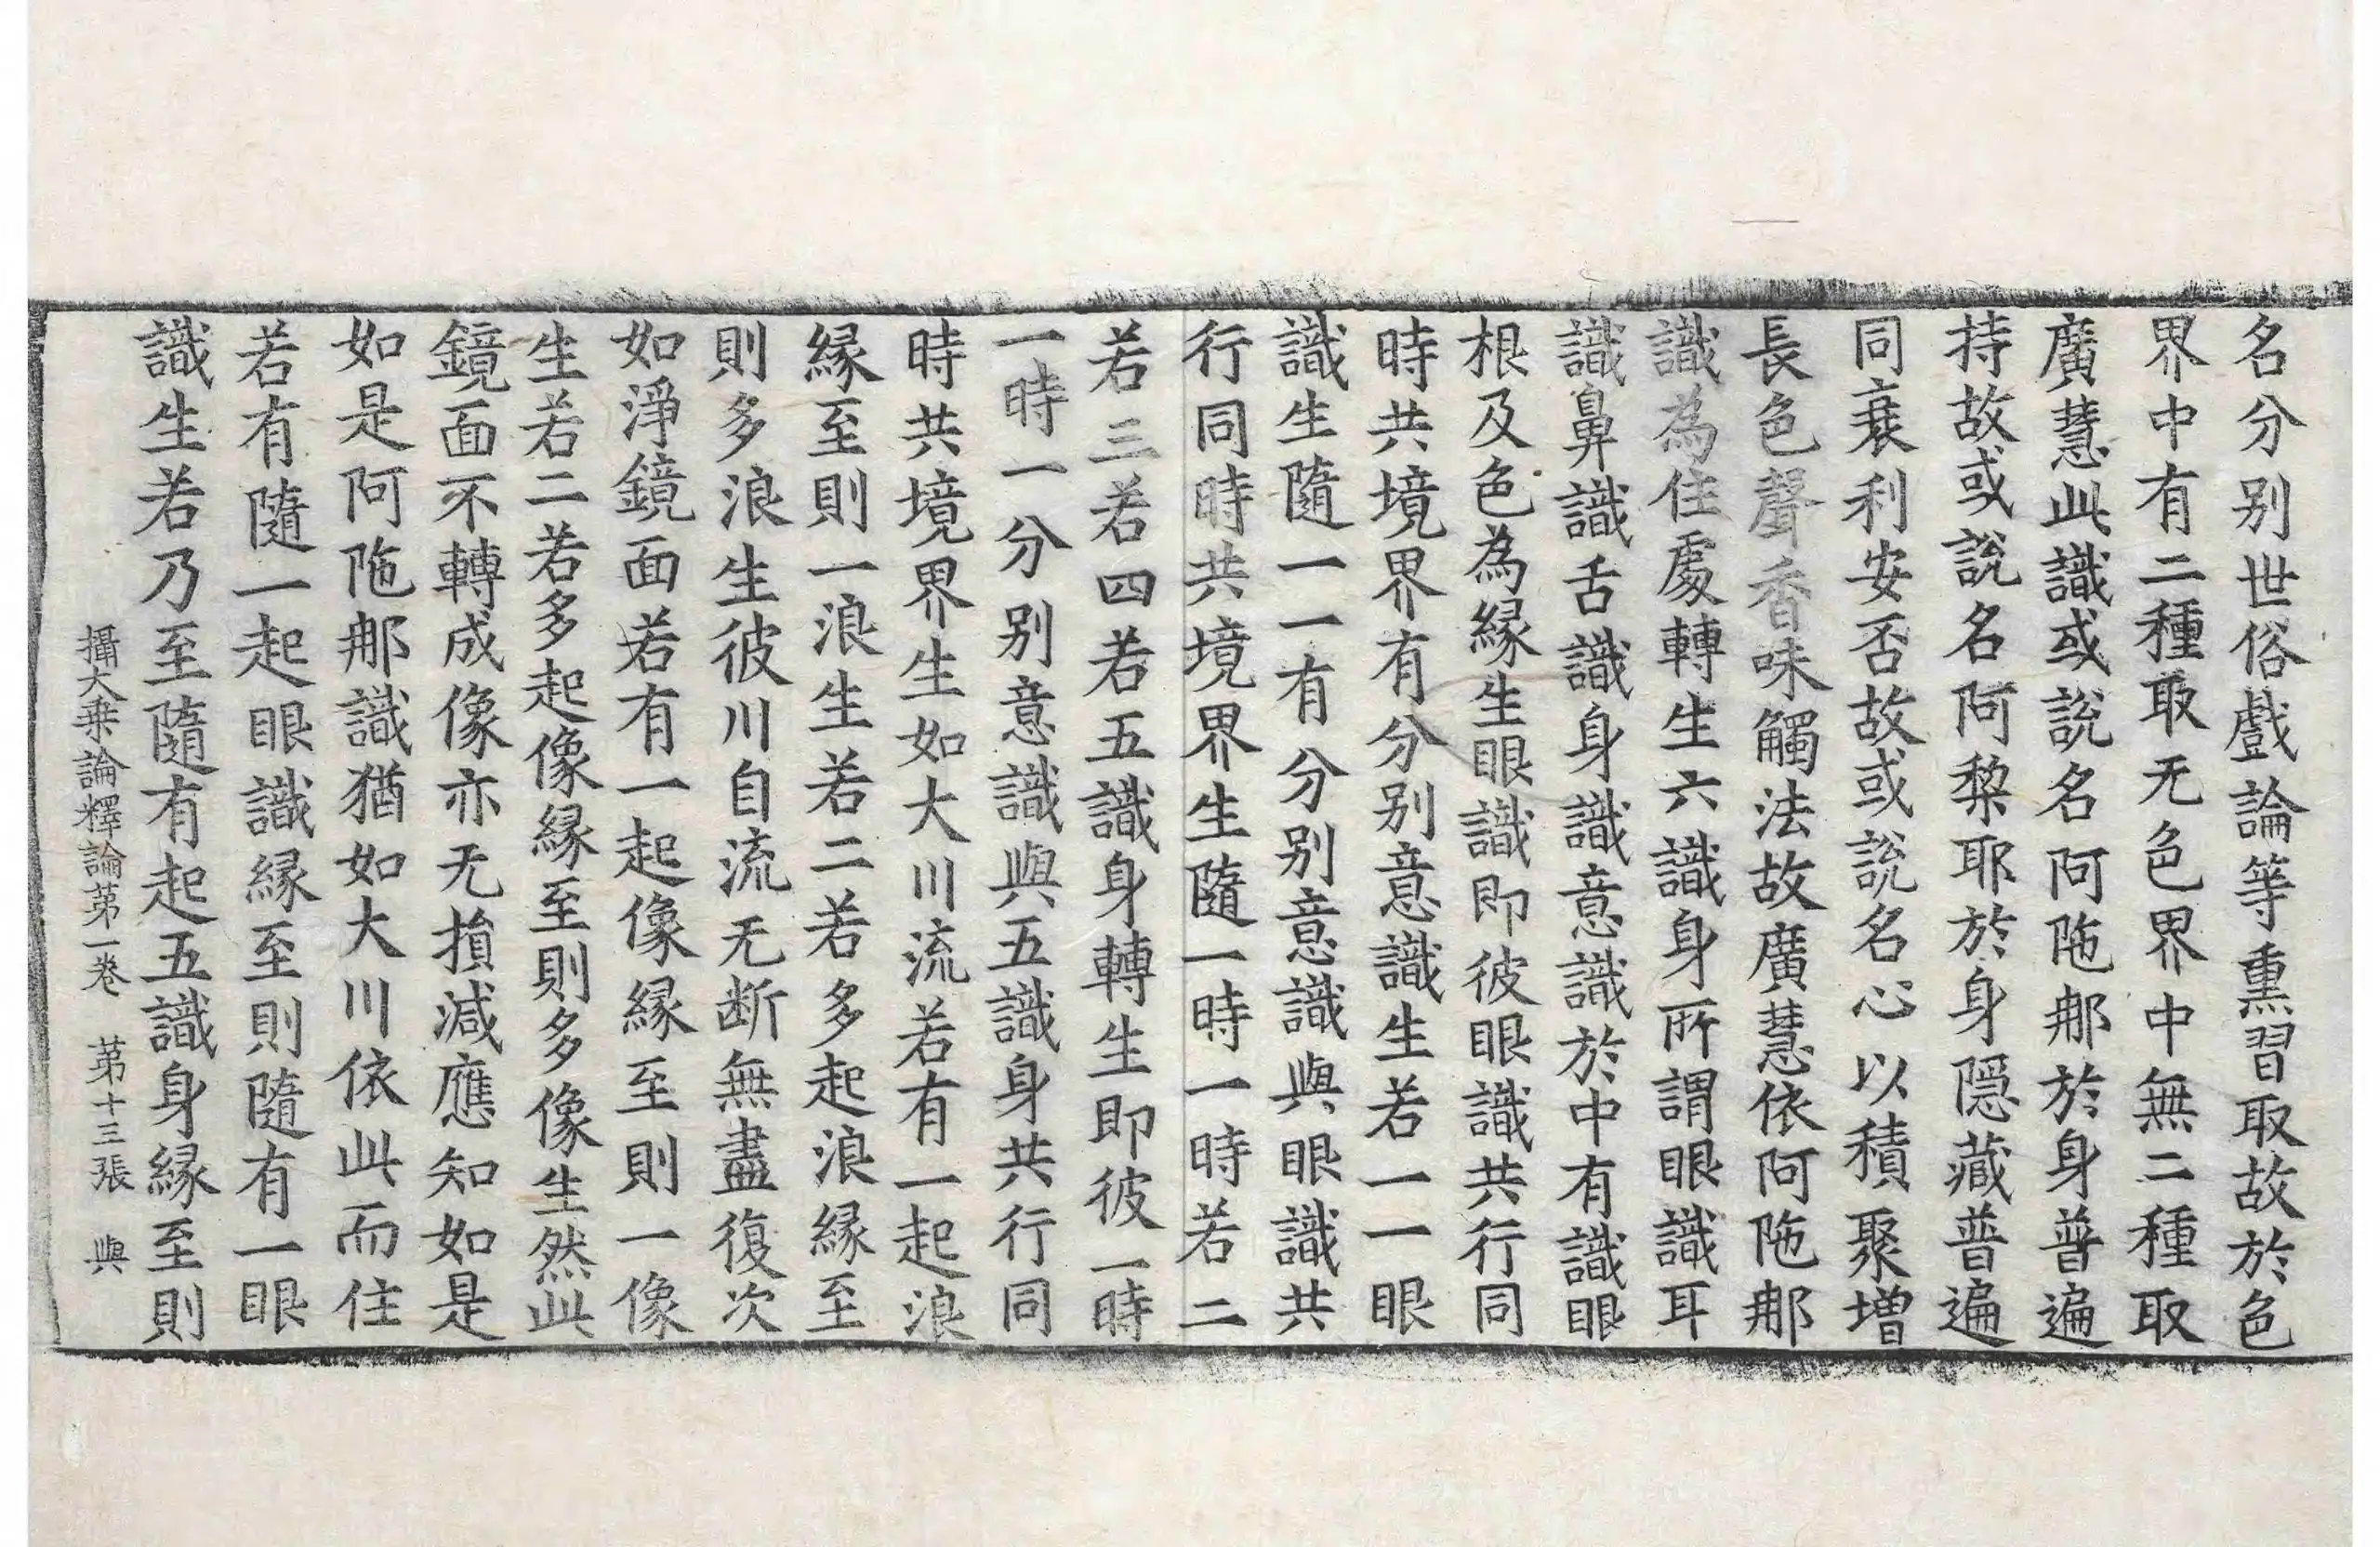 名分别世俗戲論等熏習取故於色
界中有二種取无色界中無二種取
廣慧此識或說名阿陁那於身普遍
持故或說名阿棃耶於身隱藏普遍
同衰利安否故或說名心以積聚增
長色聲香味觸法故廣慧依阿陁那
識為住處轉生六識身所謂眼識耳
識鼻識舌識身識意識於中有識眼
根及色為緣生眼識即彼眼識共行同
時共境界有分别意識生若一一眼
識生隨一一有分别意識與眼識共
行同時共境界生隨一時一時若二
若三若四若五識身轉生即彼一時
一時一分别意識與五識身共行同
時共境界生如大川流若有一起浪
緣至則一浪生若二若多起浪緣至
則多浪生彼川自流无断無盡復次
如淨鏡面若有一起像緣至則一像
生若二若多起像緣至則多像生然此
鏡面不轉成像亦无損減應知如是
如是阿陁那識猶如大川依此而住
若有隨一起眼識緣至則隨有一眼
識生若乃至隨有起五識身緣至則
攝大乗論釋論第一卷 第十三張 與